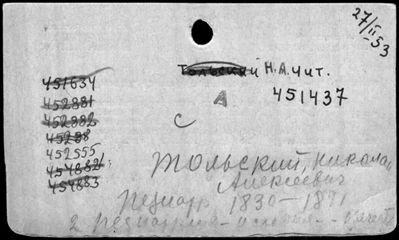 27/II 53
Тольский Н.А. Чит.
А
451437
С
451634
452881
452882
45288
452555
454882
454883
Тольский, Николай
Алексеевич
Педиатр 1830–1891
2